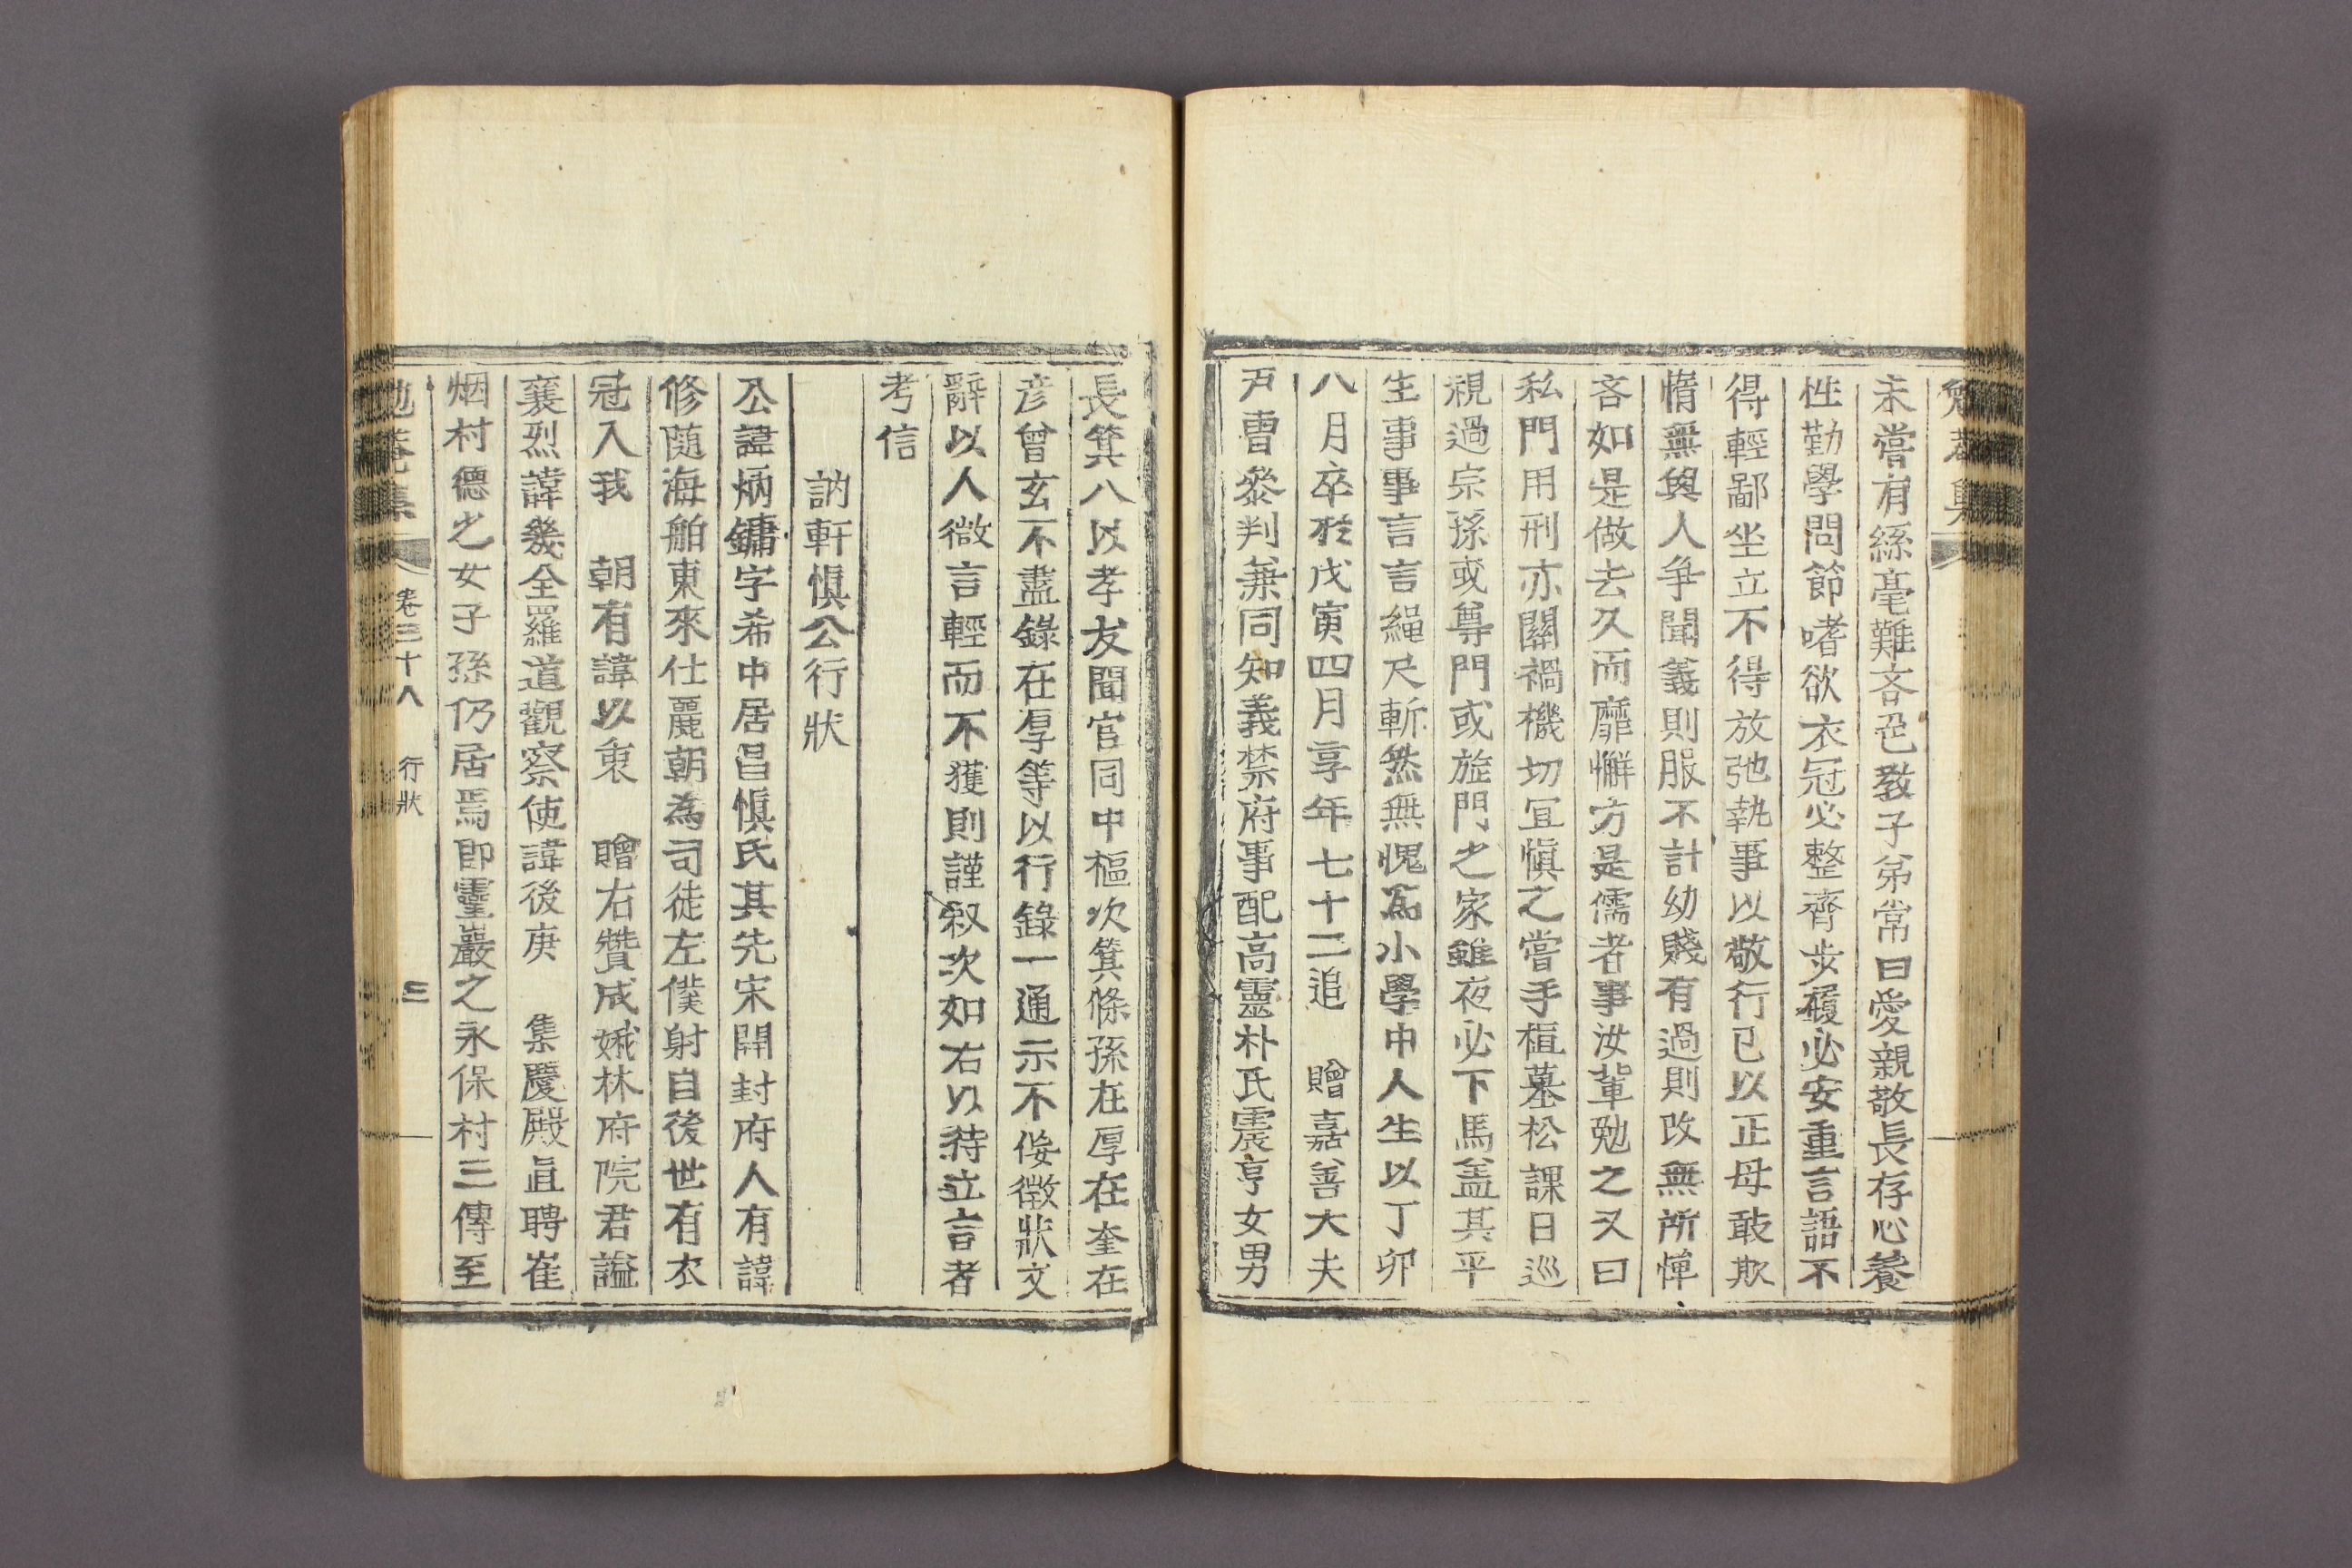 勉菴集
未嘗有絲毫難吝色敎子弟常曰愛親敬長存心養
性勤學問節嗜欲衣冠必整齊步履必安重言語不
得輕鄙坐立不得放弛執事以敬行已以正毋敢欺
惰無與人爭聞義則服不計幼賤有過則改無所憚
吝如是做去久而靡懈方是儒者事汝軰勉之又曰
私門用刑亦關禍機切宜愼之嘗手植墓松課日巡
視過宗孫或尊門或旋門之家雖夜必下馬盖其平
生事事言言繩尺斬然無愧爲小學中人生以丁卯
八月卒於戊寅四月享年七十二追 贈嘉善大夫
戶曹叅判兼同知義禁府事配高靈朴氏震亨女男
長箕八以孝友聞官同中樞次箕條孫在厚在奎在
彦曾玄不盡錄在厚等以行錄一通示不佞徵狀文
辭以人微言輕而不獲則謹叙次如右以待立言者
考信
訥軒愼公行狀
公諱炳鏞字希中居昌愼氏其先宋開封府人有諱
修隨海舶東來仕麗朝爲司徒左僕射自後世有衣
冠入我 朝有諱以衷 贈右贊成娥林府院君謚
襄烈諱幾全羅道觀察使諱後庚 集慶殿直聘崔
烟村德之女子孫仍居焉即靈巖之永保村三傳至
勉菴集 卷三十八 行狀 三